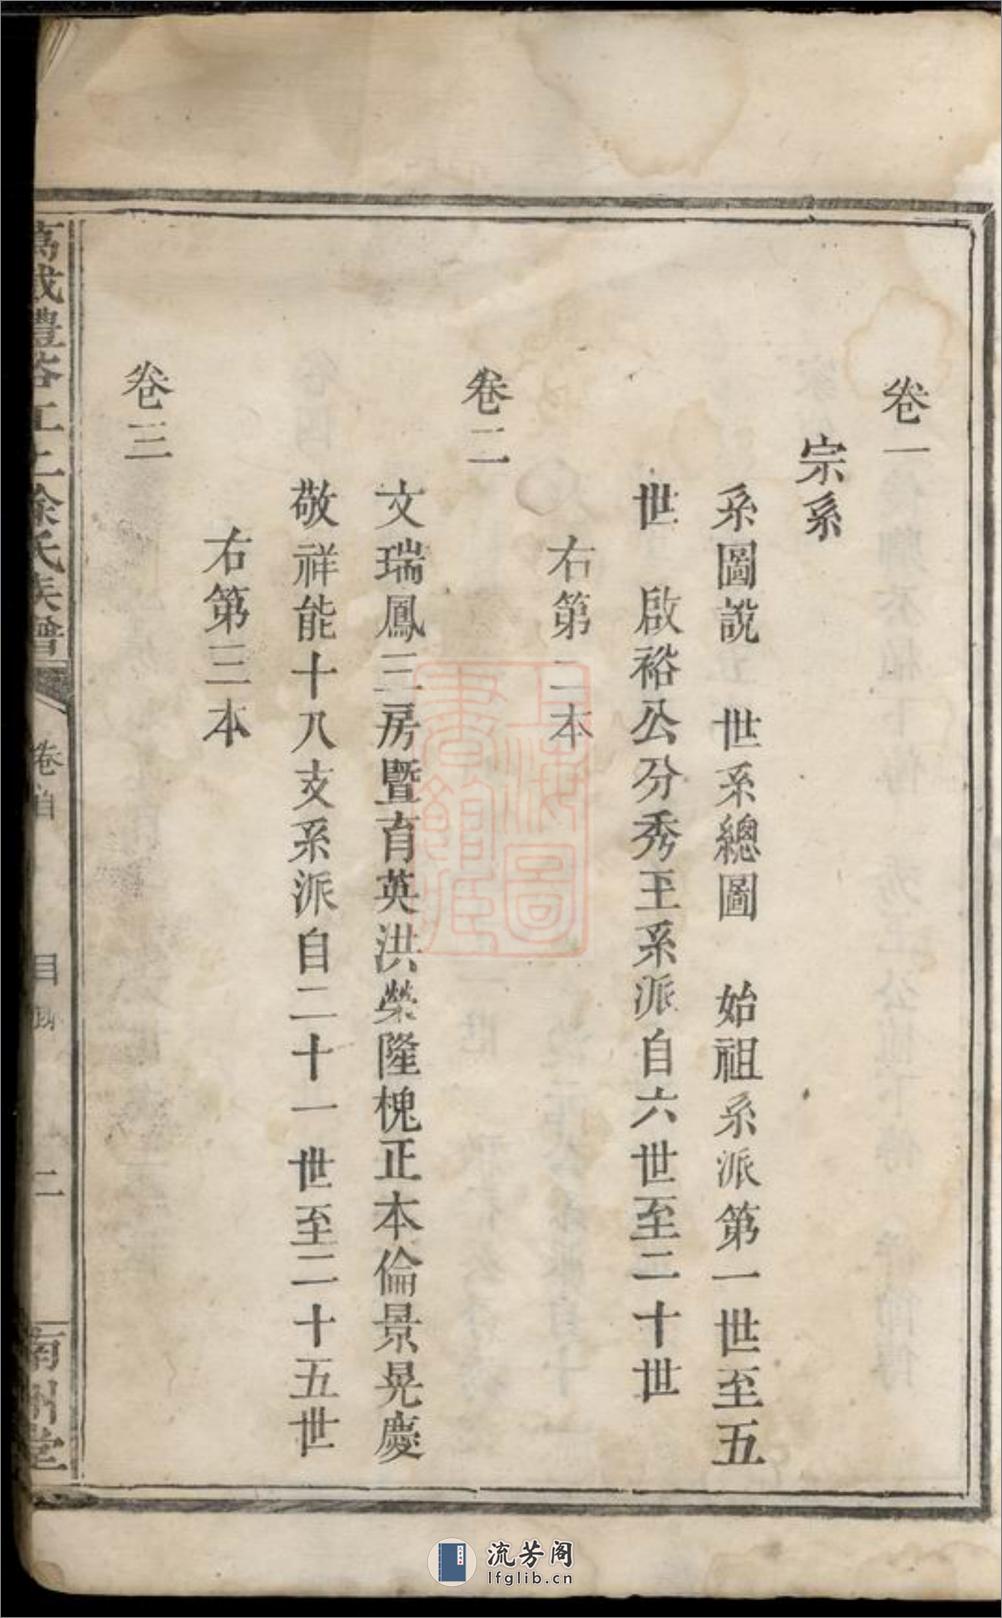 卷一
宗系
系圖説　世系總圖　始祖系派第一世至五
世　啟裕公分秀王系派自六世至二十世
右第二本
卷二
文瑞鳳三房暨育英洪榮隆槐正本倫景晃慶
敬祥能十八支系派自二十一世至二十五世
右第三本
卷三
萬載豊谷江上徐氏族譜
卷首
目錄
二
南州堂
上海圖書館藏
流芳阁
lfglib.cn